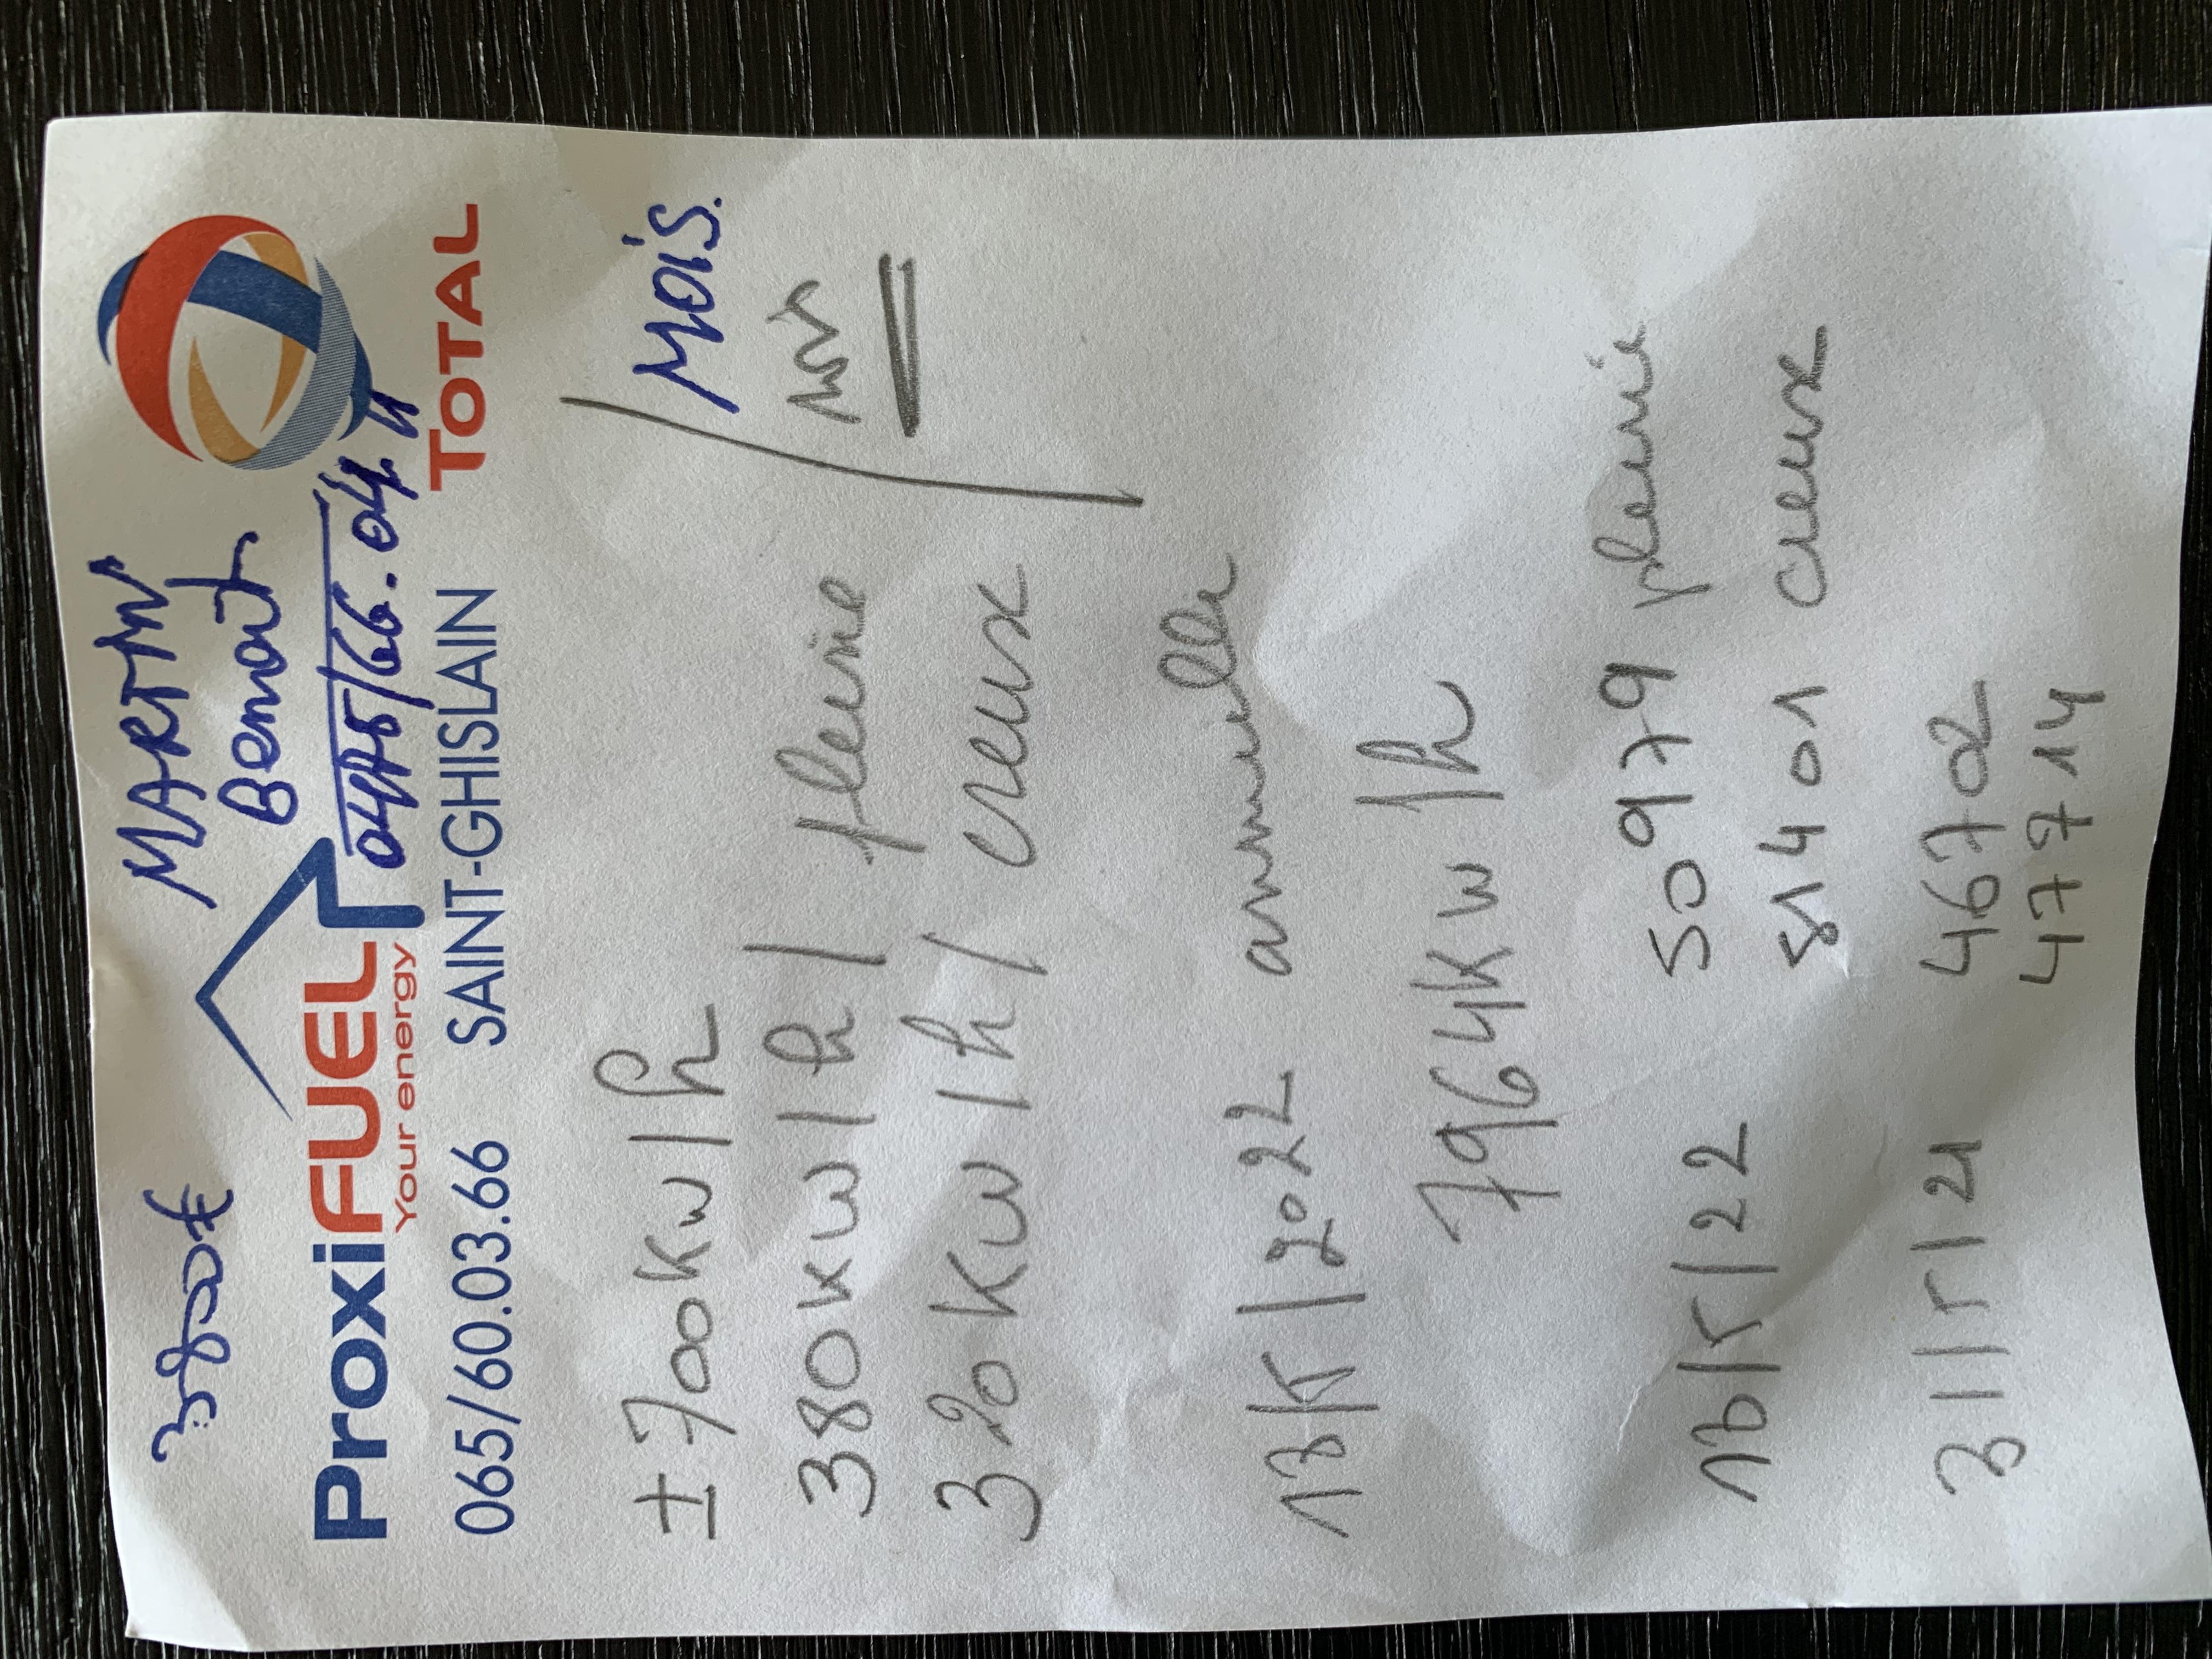 3800€ MARTIN
Benoit
ProxiFUEL 0475/66.04.11
Your energy TOTAL
065/60.03.66 SAINT-GHISLAIN
± 700 Kw/h / Mois.
380 Kw/h / pleine
320 Kw/h / creuse
18/5/2022 annuelle
7964 Kw/h
16/5/22 50979 pleine
51401 creuse
31/5/21 46702
47714